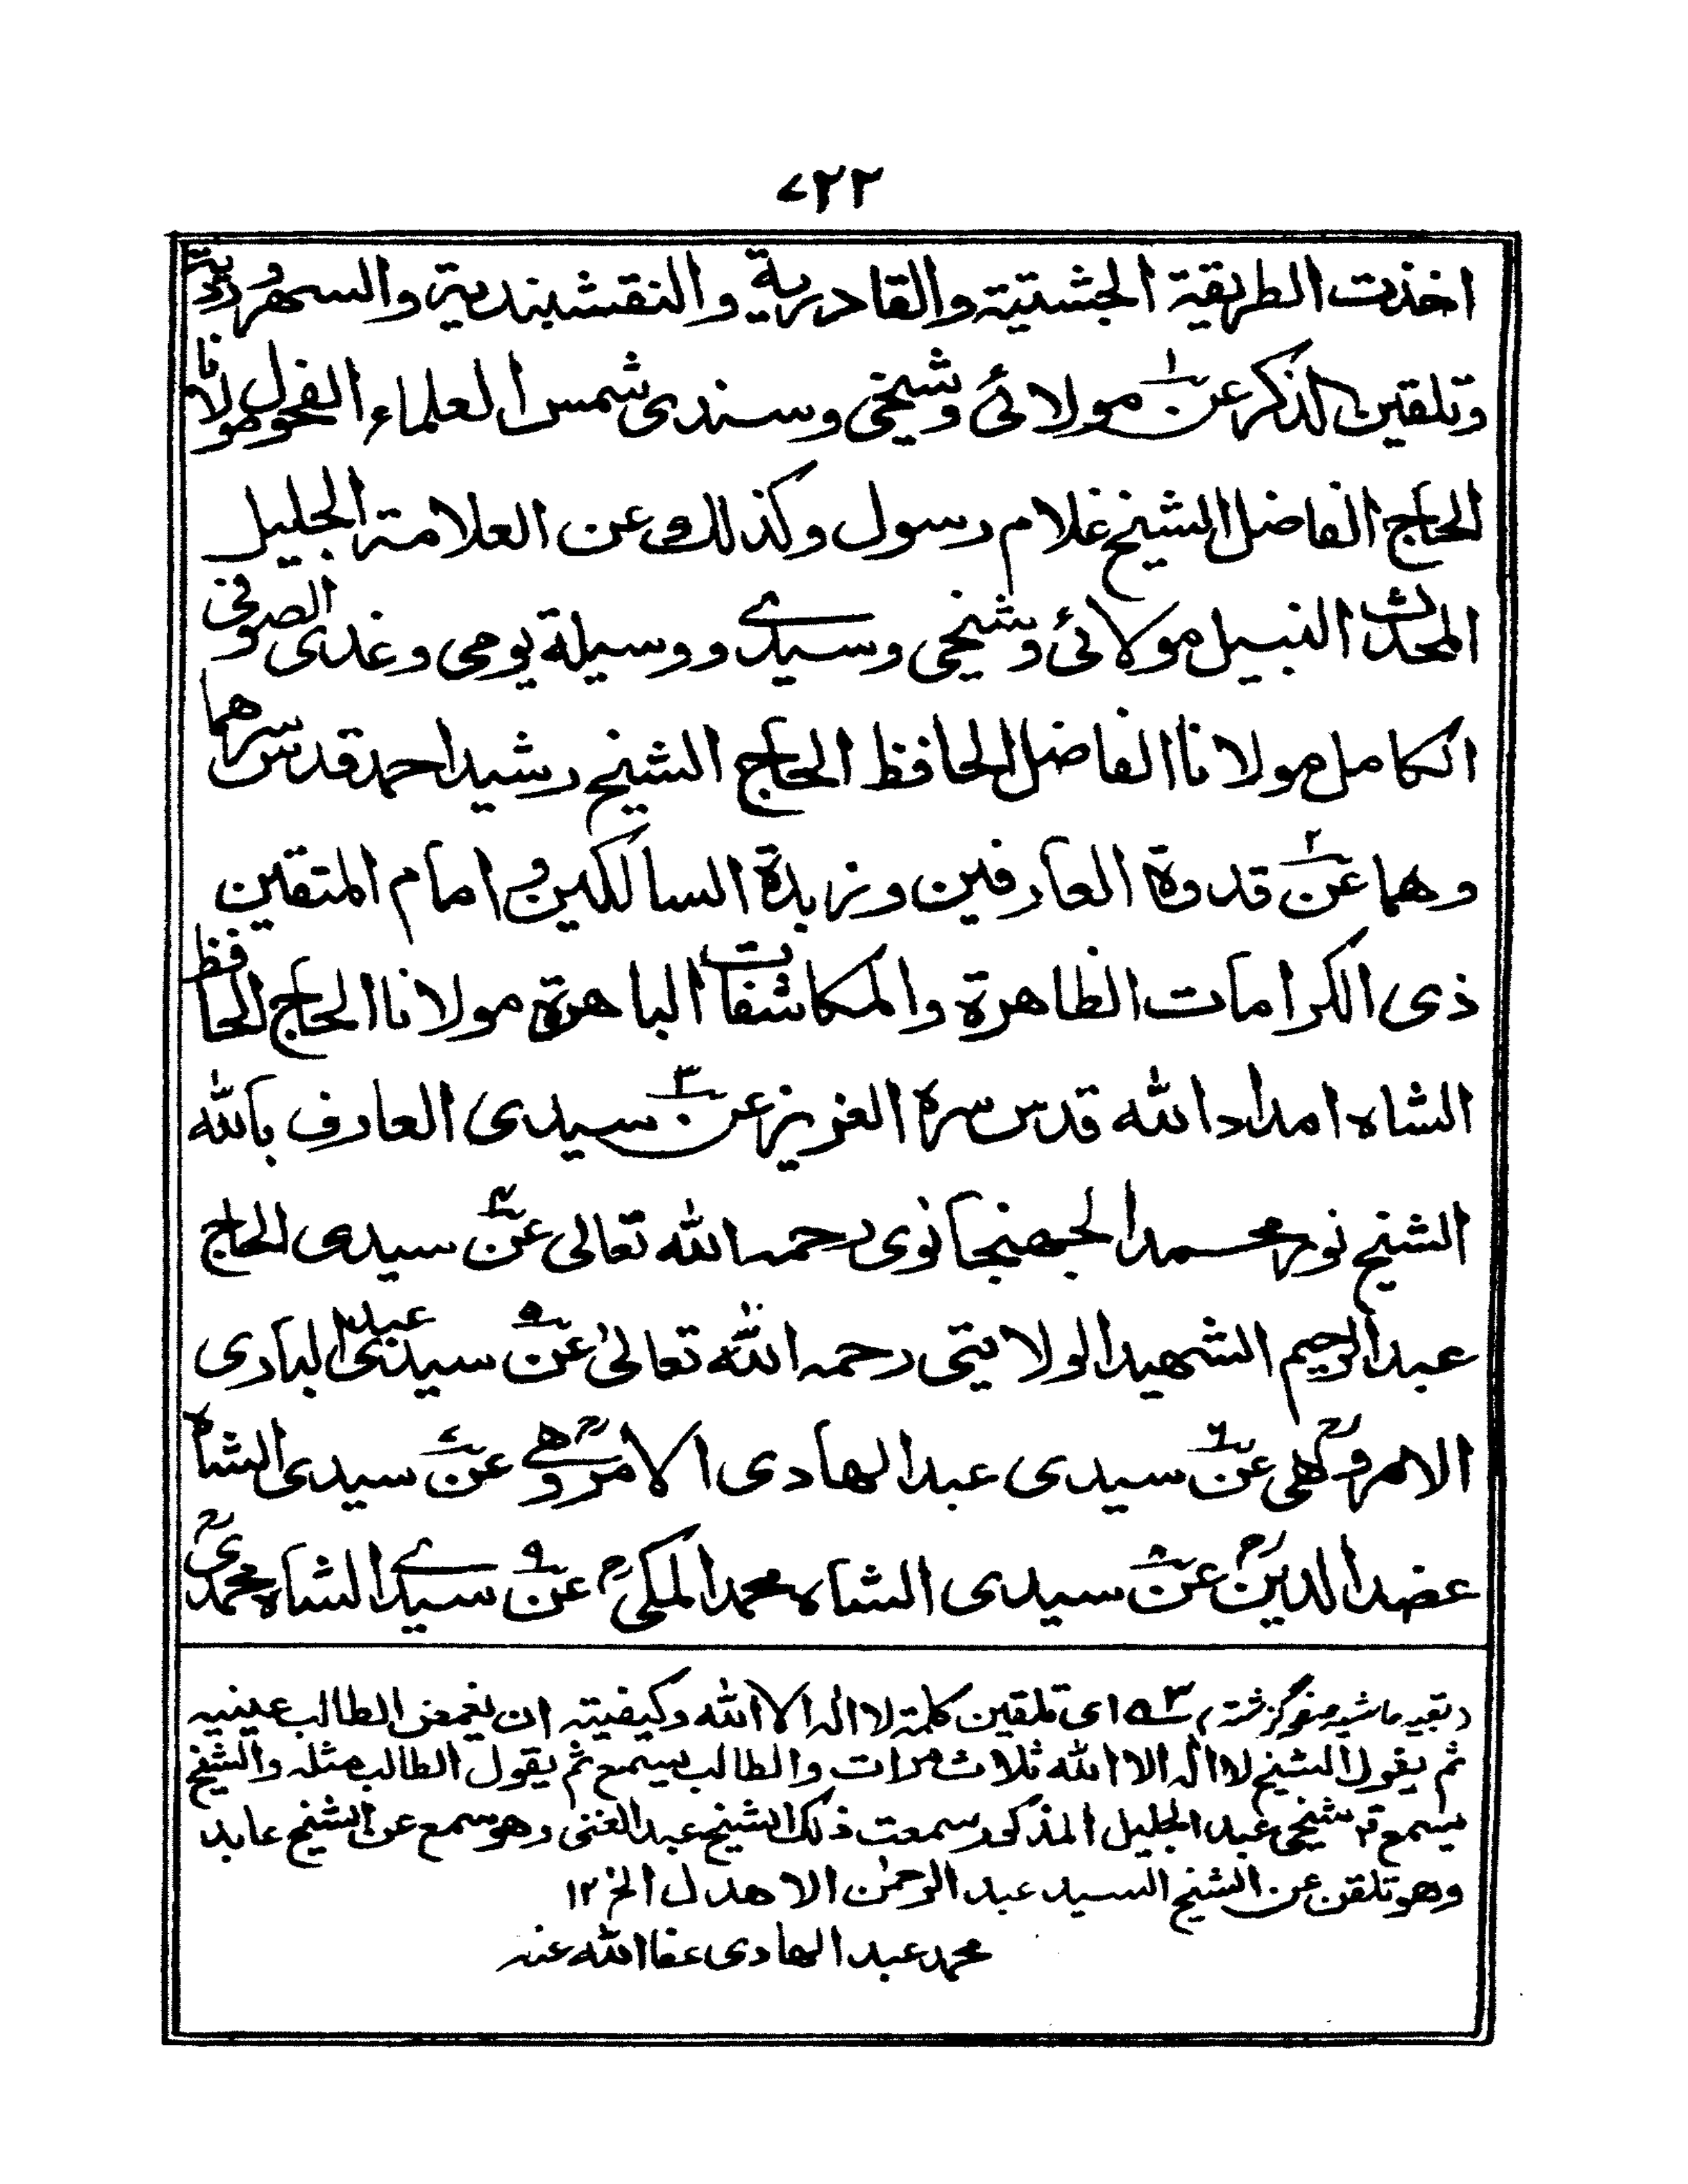 ٧٢٢
اخذت الطريقة الجشتية والقادرية والنقشبندية والسهروردية
وتلقين الذكر عن ١ مولائی وشيخی وسندی شمس العلماء الفحول مولانا
الحاج الفاضل الشيخ غلام رسول وكذلك عن العلامة الجليل
المحدث النبيل مولائی وشيخی وسيدے ووسيلة يومی وغدی الصوفی
الكامل مولانا الفاضل الحافظ الحاج الشيخ رشيد احمد قدس سرهما
وهما عن ٢ قدوة العارفين وزبدة السالكين و امام المتقين
ذی الكرامات الظاهرة والمكاشفات الباهرة مولانا الحاج الحافظ
الشاه امداد الله قدس سره العزيز عن ٣ سيدی العارف بالله
الشيخ نور محمد الجهنجانوی رحمه الله تعالی عن ٤ سيدی الحاج
عبد الرحيم الشهيد الولايتی رحمه الله تعالیٰ عن ٥ سيدی عبد الباری
الامروهی ؒ عن ٦ سيدی عبد الهادی الامروهے ؒ عن ٧ سيدی الشاه
عضد الدين ؒ عن ٨ سيدی الشاه محمد المکی ؒ عن ٩ سيدے الشاه محمدی ؒ
(بقيه حاشيه صفحه گزشته) ٣ ه ای تلقين كلمة لا اله الا الله وكيفيته ان يغمض الطالب عينيه
ثم يقول الشيخ لا اله الا الله ثلاث مرات والطالب يسمع ثم يقول الطالب مثله والشيخ
يسمع شيخی عبد الجليل المذكور سمعت ذلك الشيخ عبد الغنی وهو سمع عن الشيخ عابد
وهو تلقن عن الشيخ السيد عبد الرحمٰن الاهدل الخ ١٢
محمد عبد الهادی عفا الله عنه